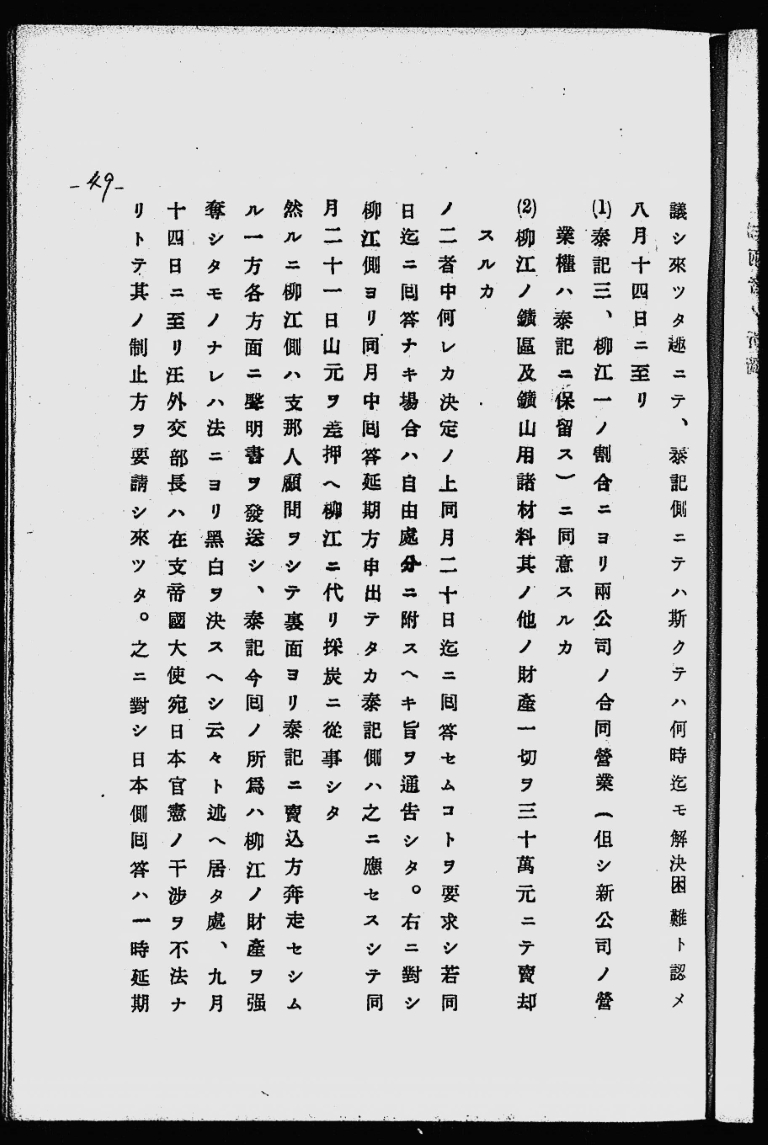 議シ來ツタ趣ニテ、泰記側ニテハ斯クテハ何時迄モ解決困難ト認メ
八月十四日ニ至リ
(1)泰記三、柳江一ノ割合ニヨリ兩公司ノ合同營業(但シ新公司ノ營
業權ハ泰記ニ保留ス)ニ同意スルカ
(2)柳江ノ鑛區及鑛山用諸材料其ノ他ノ財產一切ヲ三十萬元ニテ賣却
スルカ
ノ二者中何レカ決定ノ上同月二十日迄ニ囘答セムコトヲ要求シ若同
日迄ニ囘答ナキ場合ハ自由處分ニ附スヘキ旨ヲ通告シタ。右ニ對シ
柳江側ヨリ同月中囘答延期方申出テタカ泰記側ハ之ニ應セスシテ同
月二十一日山元ヲ差押ヘ柳江ニ代リ採炭ニ從事シタ
然ルニ柳江側ハ支那人顧問ヲシテ裏面ヨリ泰記ニ賣込方奔走セシム
ル一方各方面ニ聲明書ヲ發送シ、泰記今囘ノ所爲ハ柳江ノ財產ヲ强
奪シタモノナレハ法ニヨリ黑白ヲ決スヘシ云々ト述ヘ居タ處、九月
十四日ニ至リ汪外交部長ハ在支帝國大使宛日本官憲ノ干涉ヲ不法ナ
リトテ其ノ制止方ヲ要請シ來ツタ。之ニ對シ日本側囘答ハ一時延期
-49-